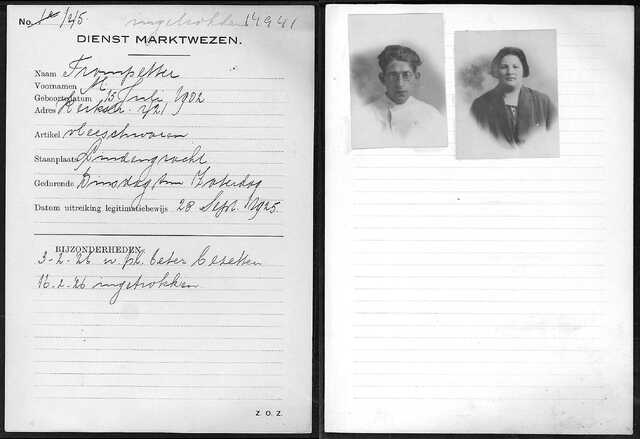 No. 12/25. ingetrokken 14941
DIENST MARKTWEZEN.
Naam Trompetter
Voornamen M.
Geboortedatum 15 Juli 1902
Adres Kerkstr. 421
Artikel vleeschwaren
Staanplaats Lindengracht
Gedurende Dinsdag t/m Zaterdag
Datum uitreiking legitimatiebewijs 28 Sept. 1925
BIJZONDERHEDEN
3-2-26 w. pl. beter bezetten
16-2-26 ingetrokken
Z. O. Z.